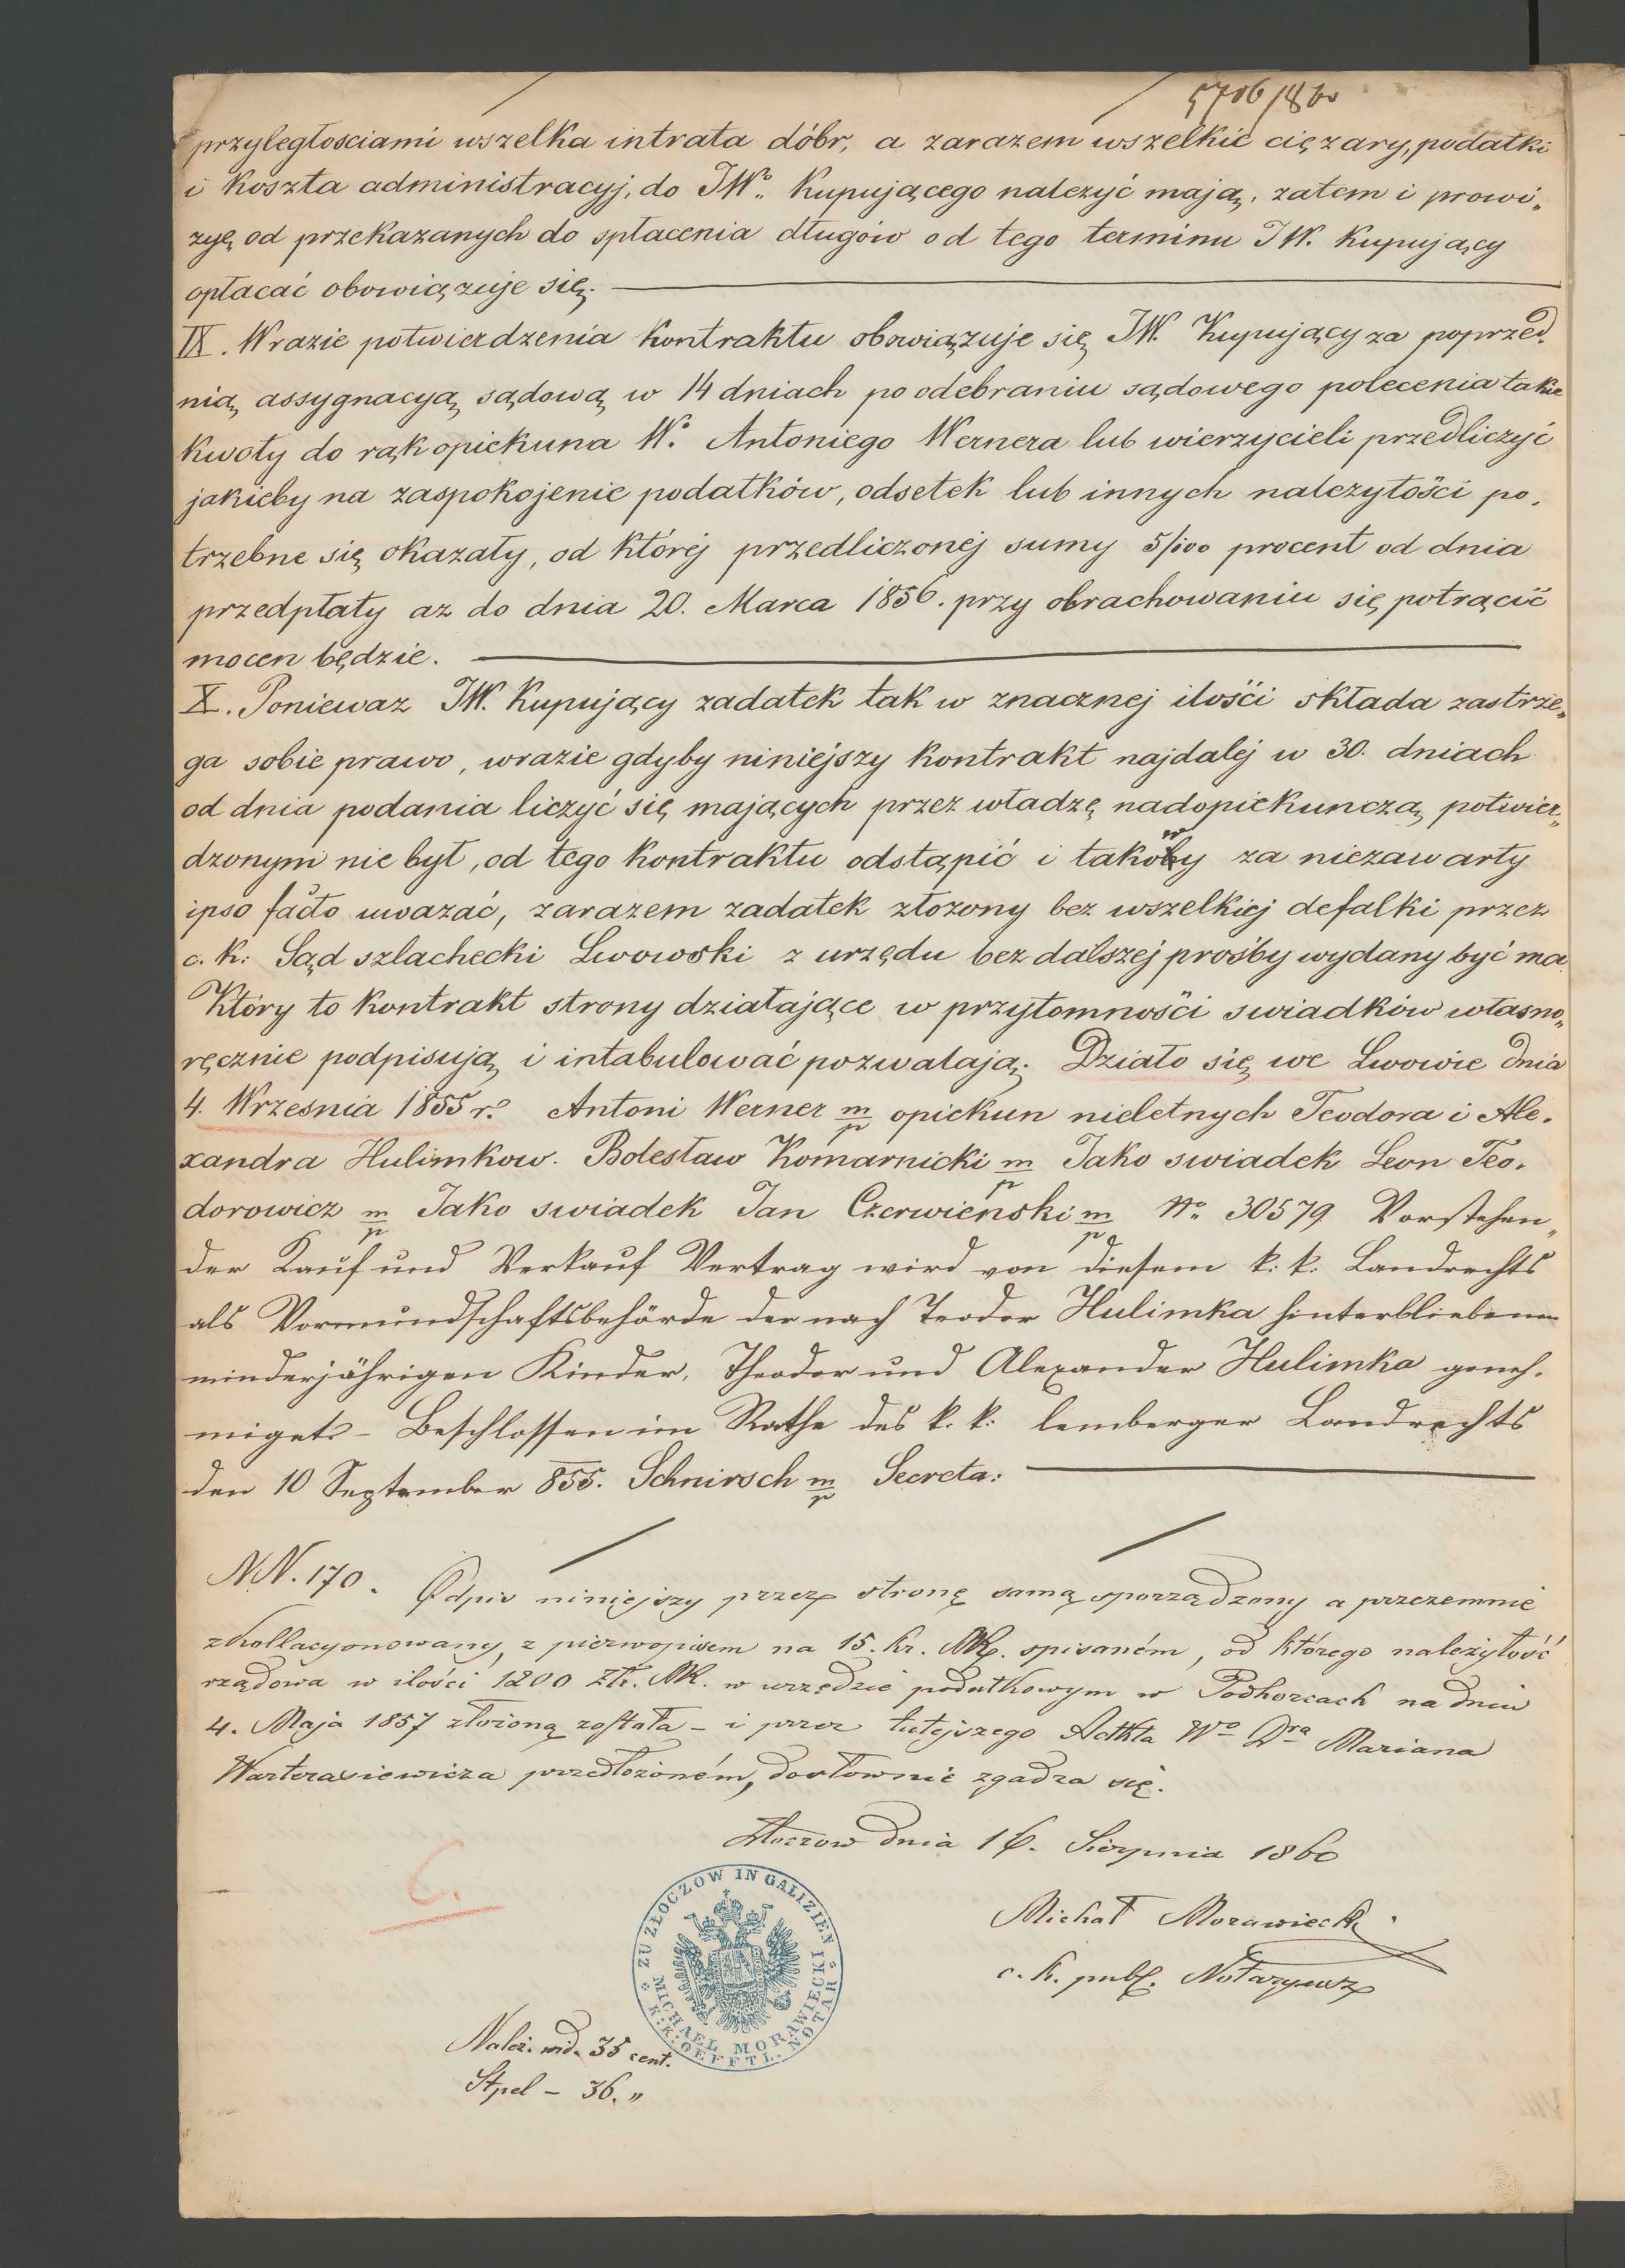 5706/860
przyległosciami wszelka intrata dóbr, a zarazem wszelkie ciężary, podatki
i koszta administracyj, do JWº. Kupującego należyć mają, zatem i prowi„
zyę od przekazanych do spłacenia długów od tego terminu JW. Kupujący
opłacać obowiązuje się. —
IX. Wrazie potwierdzenia Kontraktu obowiązuje się JW. Kupujący za poprzed„
nią assygnacyą sądową w 14 dniach po odebraniu sądowego polecenia takie
Kwoty do rąk opiekuna Wº. Antoniego Wernera lub wierzycieli przedliczyć
jakieby na zaspokojenie podatków, odsetek lub innych nalezytości po„
trzebne się okazały, od której przedliczonej sumy 5/100 procent od dnia
przedpłaty az do dnia 20. Marca 1856. przy obrachowaniu się potrącić
mocen będzie. —
X. Poniewaz JW. Kupujący zadatek tak w znacznej ilości składa zastrze„
ga sobie prawo, wrazie gdyby niniejszy Kontrakt najdalej w 30. dniach
od dnia podania liczyć się mających przez władzę nadopiekunczą potwier„
dzonym nie był, od tego Kontraktu odstąpić i takowy za niezawarty
ipso facto uwazać, zarazem zadatek złozony bez wszelkiej defalki przez
c. k. Sąd szlachecki Lwowski z urzędu bez dalszej prośby wydany być ma
Który to Kontrakt strony działające w przytomności swiadków własno„
ręcznie podpisują i intabulować pozwalają. Działo się we Lwowie dnia
4. Wrzesnia 1855 r. Antoni Werner m/p opiekun nieletnych Teodora i Ale„
xandra Hulimkow. Bolesław Komarnicki m/p Jako swiadek Leon Teo„
dorowicz m/p Jako swiadek Jan Czerwienski m/p Nº 30579 Vorstehen„
der Kauf und Verkauf Vertrag wird von diesem k. k. Landrechts
als Vormundschaftsbehörde der nach Teodor Hulimka hinterbliebenen
minderjährigen Kinder, Theodor und Alexander Hulimka geneh„
miget. - Beschlossen im Rathe des k. k. lemberger Landrechts
den 10 September 855. Schnirsch m/p Secreta: —
NN. 170. Odpis niniejszy przez stronę samą sporządzony a przezemnie
zkollacyonowany, z pierwopisem na 15. kr. MK. spisaném, od którego należytość
rządowa w ilości 1200 Złr. MK. w urzędzie podatkowym w Podhorcach na dniu
4. Maja 1857 złożoną została - i przez tutejszego Adtkta Wº Dra Mariana
Warteresiewicza przedłożoném, dosłownie zgadza się.
Złoczow dnia 16. Sierpnia 1860
Michał Morawiecki
c. k. publ. Notaryusz
C.
ZU ZŁOCZOW IN GALIZIEN
MICHAEL MORAWIECKI
K: K: OEFFTL. NOTAR
Należ. wid. 35 cent.
Stpel – 36. „